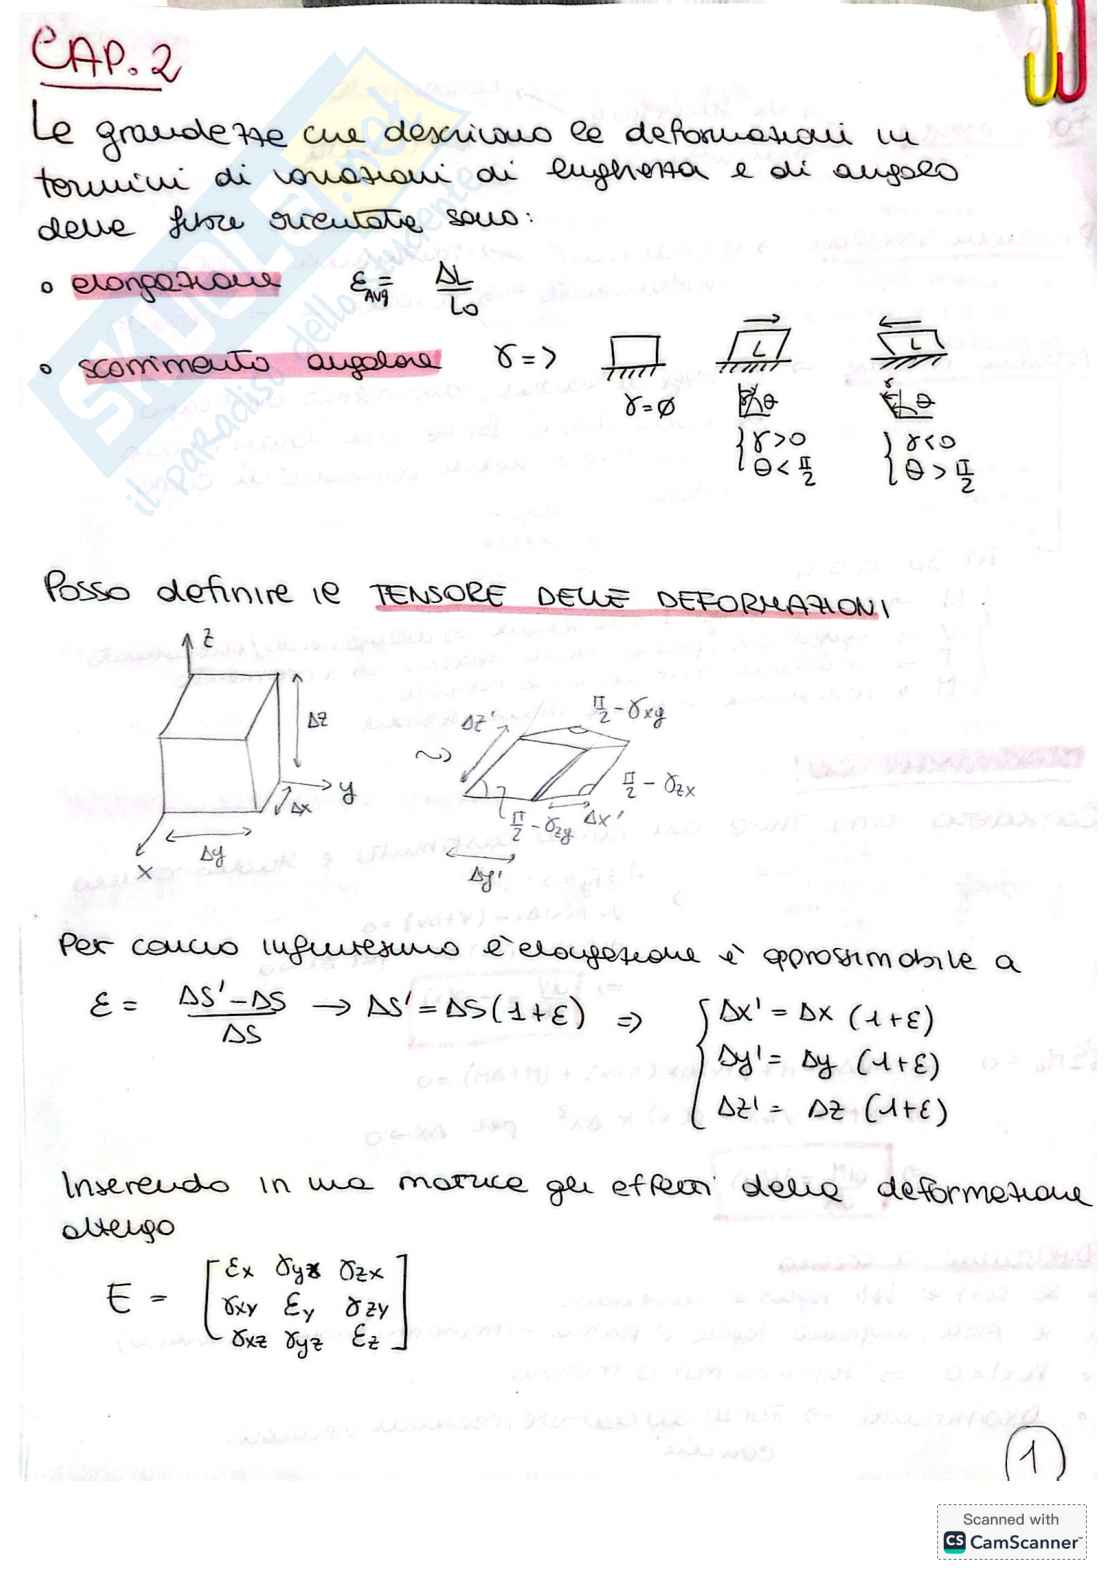 CAP. 2
Le grandezze che descrivono le deformazioni in
termini di variazioni di lunghezza e di angolo
delle fibre orientate sono:
• elongazione ε_AVG = ΔL/L0
• scorrimento angolare γ =>
L
L
γ = ∅
γ
θ
γ
θ
{ γ > 0
θ < π/2
{ γ < 0
θ > π/2
Posso definire il TENSORE DELLE DEFORMAZIONI
z
Δz
y
Δx
Δy
x
Δz'
π/2 - γxy
π/2 - γzx
π/2 - γzy
Δx'
Δy'
Per concio infinitesimo l'elongazione è approssimabile a
ε = (ΔS' - ΔS)/ΔS → ΔS' = ΔS (1+ε) => { Δx' = Δx (1+ε)
Δy' = Δy (1+ε)
Δz' = Δz (1+ε)
Inserendo in una matrice gli effetti della deformazione
ottengo
E = [ εx γyx γzx
γxy εy γzy
γxz γyz εz ]
1
Scanned with
CS CamScanner
SKUOLA.net
il paradiso dello studente